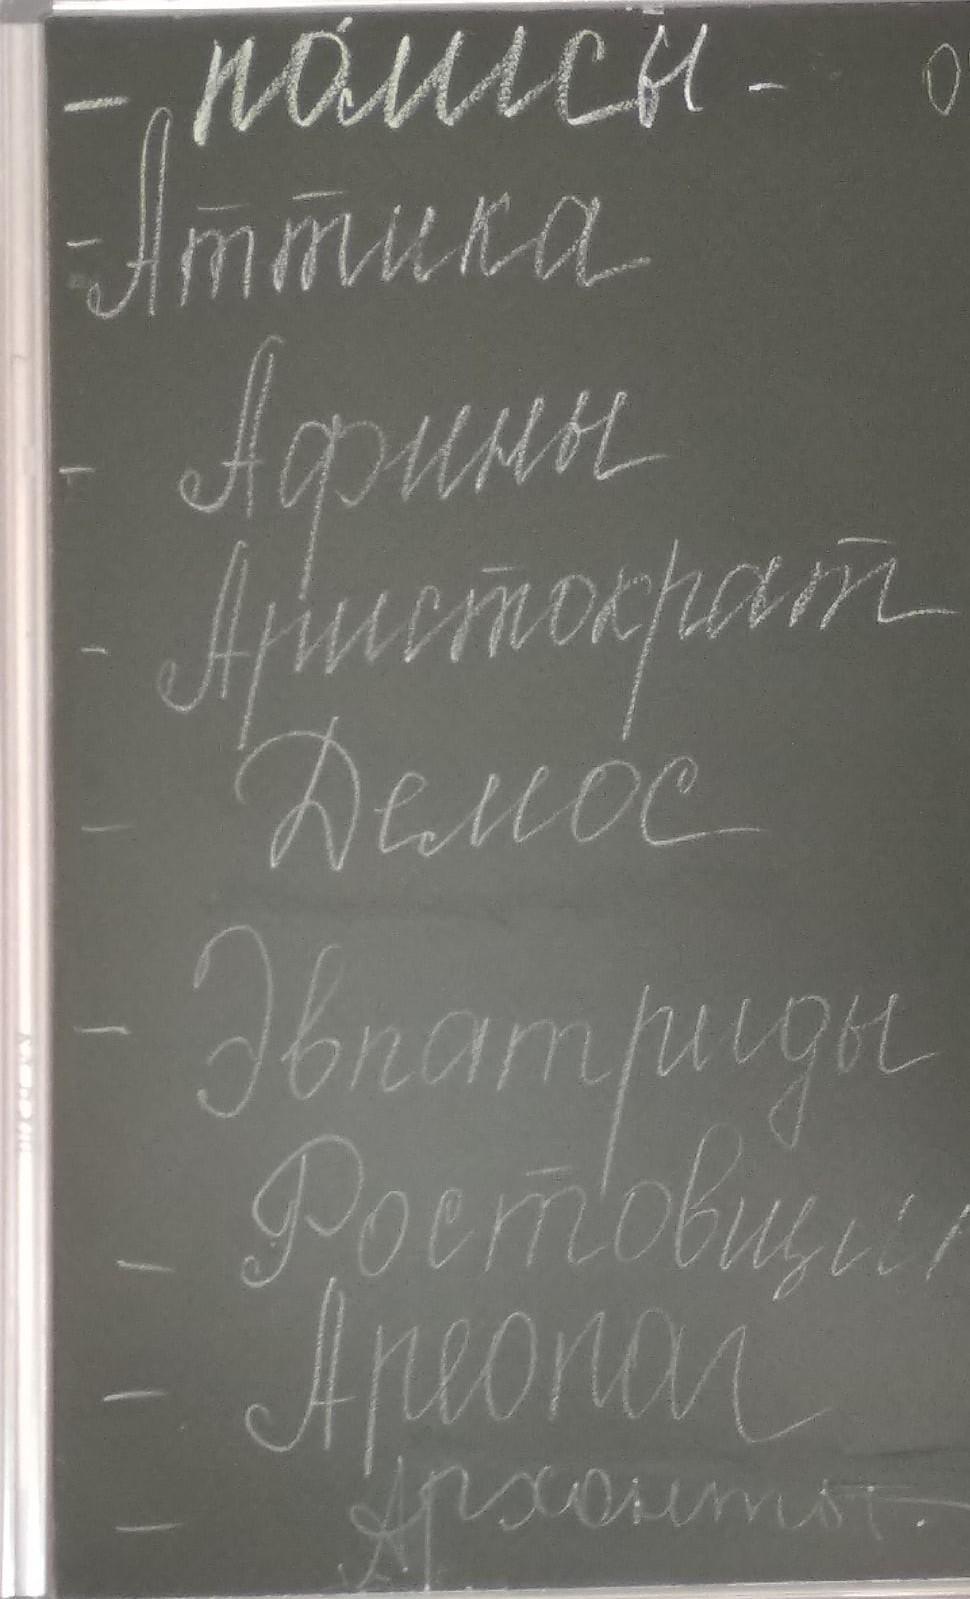 - полисы - О
- Аттика
- Афины
- Аристократ
- Демос
- Эвпатриды
- Ростовщик
- Ареопаг
- Архонты.